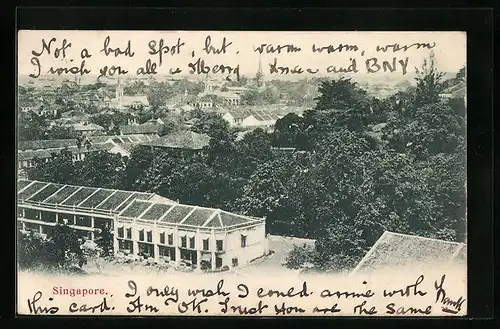 Not a bad spot, but warm warm, warm
I wish you all a Merry Xmas and BNY
Singapore.
I only wish I could arrive with
this card. Am OK. Trust you are the same
Frank